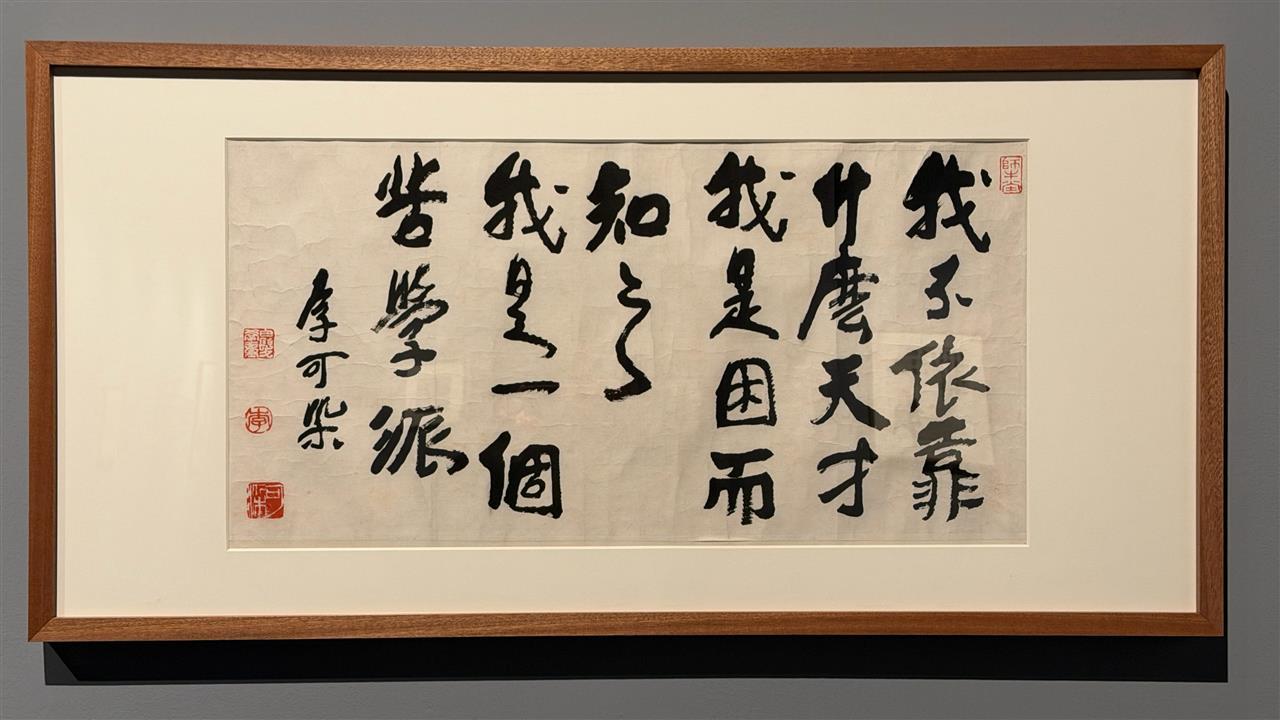 師牛堂
我不依靠
什麼天才
我是困而
知之
我是一個
苦學派
李可染
李
可染